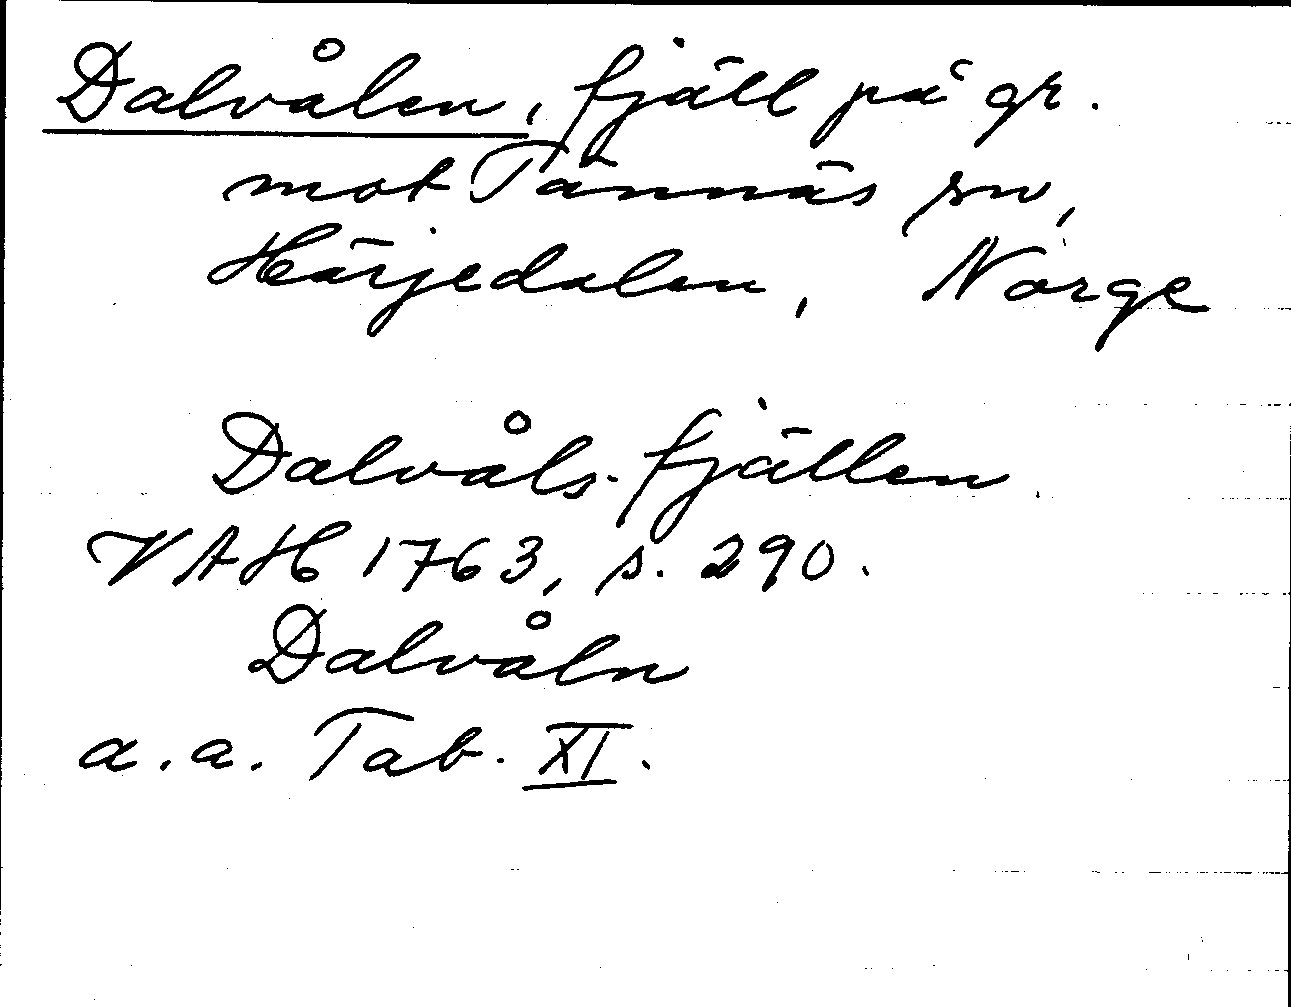 Dalvålen, fjäll på gr.
mot Tännäs sn,
Härjedalen, Norge
Dalvåls-fjällen
VAH 1763, s. 290.
Dalvåln
a.a. Tab. XI.